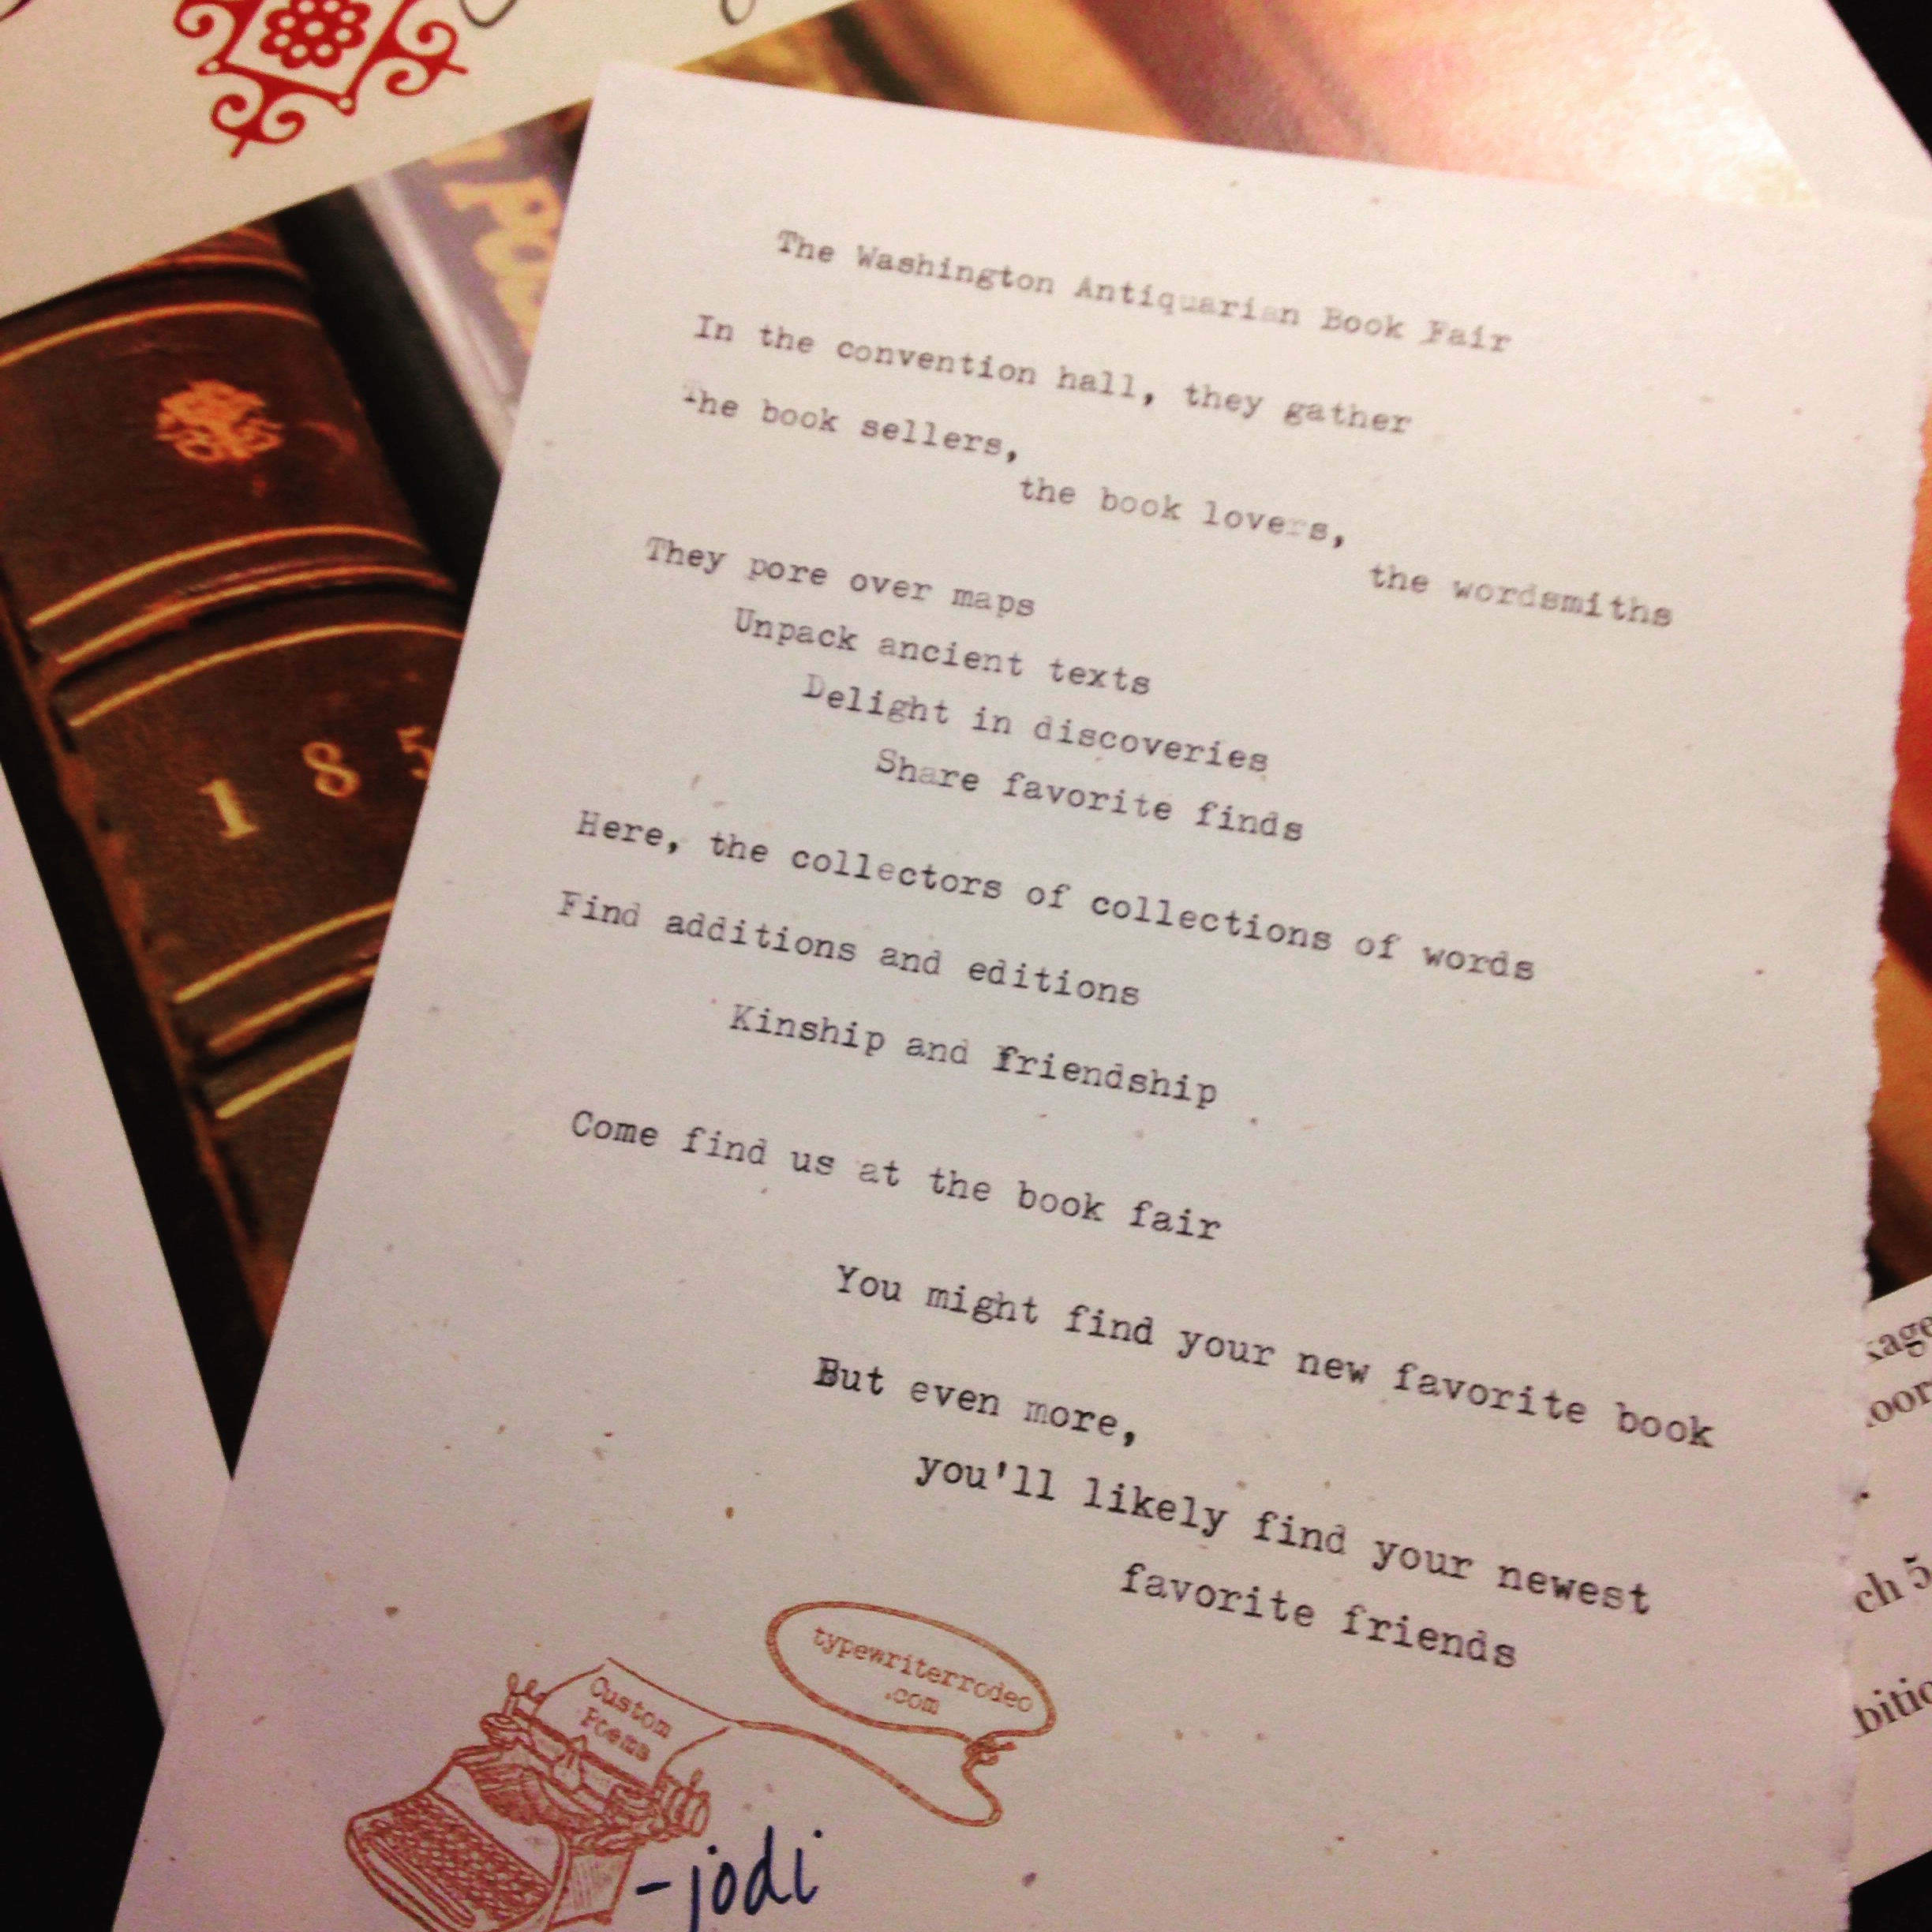 The Washington Antiquarian Book Fair
In the convention hall, they gather
The book sellers,
the book lovers,
the wordsmiths
They pore over maps
Unpack ancient texts
Delight in discoveries
Share favorite finds
Here, the collectors of collections of words
Find additions and editions
Kinship and friendship
Come find us at the book fair
You might find your new favorite book
But even more,
you'll likely find your newest
favorite friends
typewriterrodeo
.com
Custom
Poems
-jodi
1 8 5
ch 5